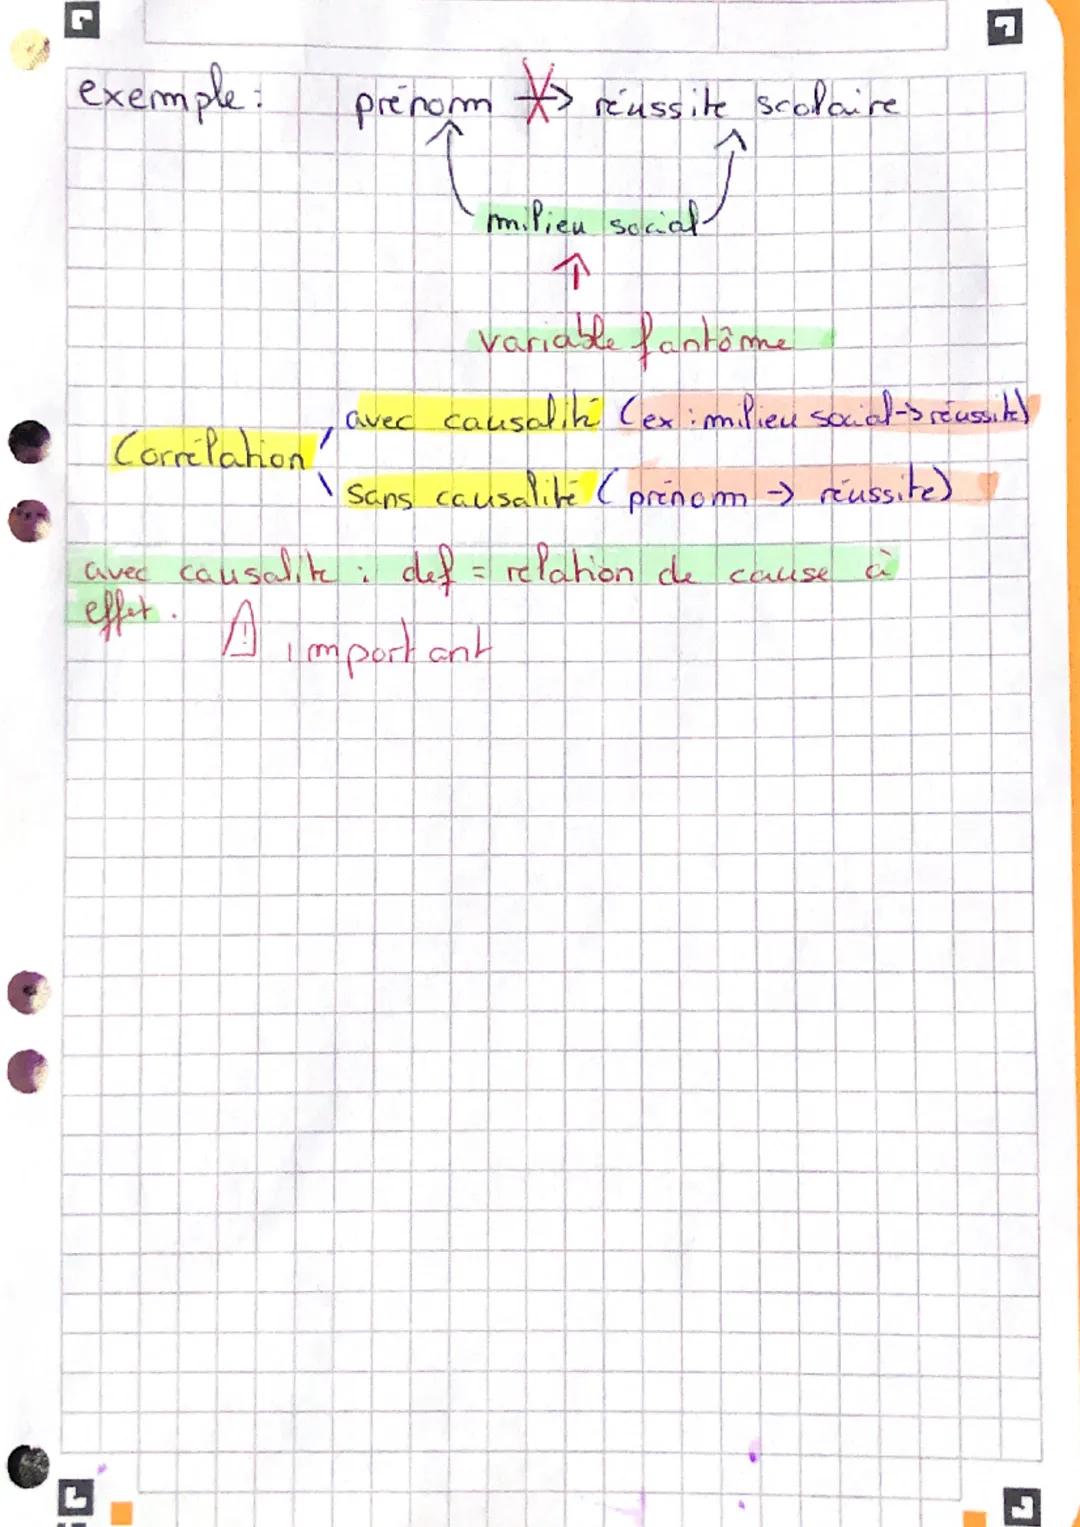 exemple : prénom → réussite scolaire
milieu social
↑
variable fantôme
avec causalité (ex : milieu social → réussite)
Corrélation
sans causalité (prénom → réussite)
avec causalité : def = relation de cause à
effet.
⚠ important